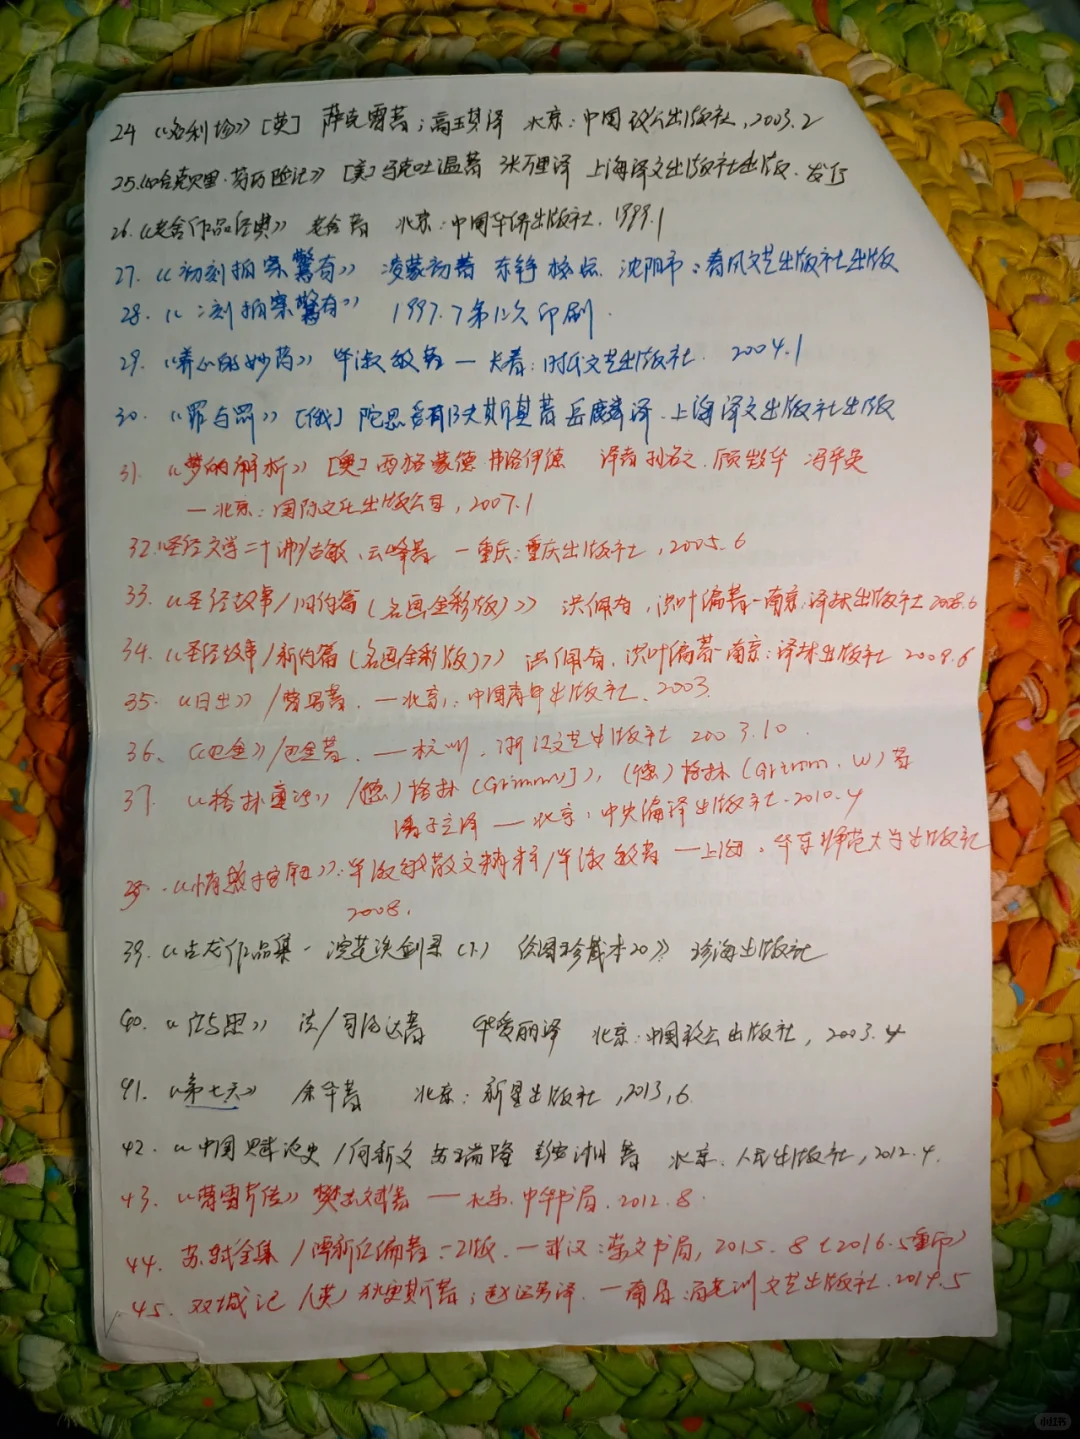 24 《名利场》[英] 萨克雷著；高玉梦译 北京：中国致公出版社，2003.2
25.《哈克贝里·芬历险记》[美]马克吐温著 张万里译 上海译文出版社出版.发行
26.《老舍作品经典》老舍著 北京：中国华侨出版社. 1999.1
27.《初刻拍案驚奇》凌蒙初著 校坛 沈阳市：春风文艺出版社出版
28.《二刻拍案驚奇》 1997.7第12次印刷.
29.《养心的妙药》毕淑敏著 — 长春：时代文艺出版社. 2004.1
30.《罪与罚》[俄]陀思妥耶夫斯基著 岳麟译.上海译文出版社出版
31.《梦的解析》[奥]西格蒙德·弗洛伊德 译者 孙名之.顾凯华 冯华英
— 北京：国际文化出版公司，2007.1
32.圣经文学二十讲/古敏、云峰著 — 重庆：重庆出版社，2005.6
33.《圣经故事/旧约篇(名画全彩版)》洪佩奇，洪叶编著-南京：译林出版社 2008.6
34.《圣经故事/新约篇(名画全彩版)》洪佩奇，洪叶编著-南京：译林出版社 2009.6
35.《日出》/曹禺著. — 北京：中国青年出版社. 2003.
36、《巴金》/巴金著. — 杭州. 浙江文艺出版社 2003.10.
37.《格林童话》/(德)格林(Grimm J), (德)格林(Grimm.W)著
潘子立译 — 北京：中央编译出版社.2010.4
38.《情感按钮》.毕淑敏散文精粹/毕淑敏著 — 上海.华东师范大学出版社
2008.
39.《古龙作品集 - 浣花洗剑录(下) 绘图珍藏本20》珍海出版社
40.《拉马思》法/司汤达著 华爱丽译 北京：中国致公出版社，2003.4
41.《第七天》余华著 北京：新星出版社，2013,6.
42.《中国财政史/何新文 苏瑞隆 彭安湘著 北京.人民出版社，2012.4.
43.《曹雪芹传》樊志斌著 — 北京.中华书局.2012.8.
44.苏轼全集/谭新红编著.-2版.-武汉：崇文书局，2015.8(2016.5重印)
45.双城记/(英)狄更斯著；译.-南昌：百花洲文艺出版社.2014.5
小红书